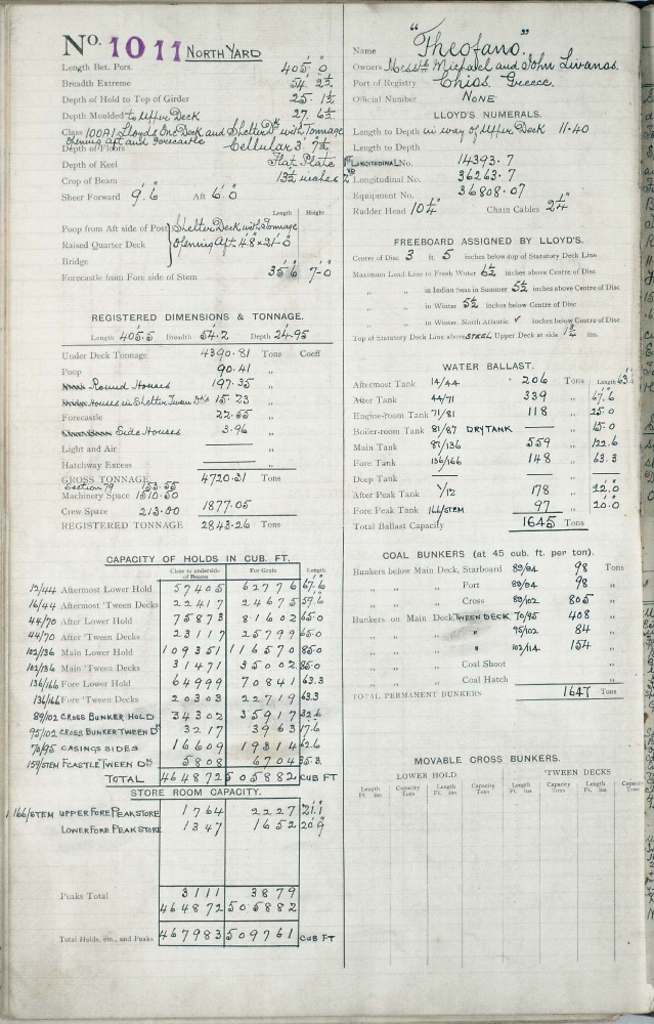 No. 1011 NORTH YARD
Length Bet. Pers. 405' 0"
Breadth Extreme 54' 2½"
Depth of Hold to Top of Girder 25' 1½"
Depth Moulded to Upper Deck 27' 6½"
Class 100A1 Lloyds One Deck and Shelter Dk with Tonnage
Opening aft and Forecastle
Depth of Floors Cellular 3' 7½"
Depth of Keel Flat Plate
Crop of Beam 13½ inches
Sheer Forward 9' 6" Aft 6' 0"
Length Height
Poop from Aft side of Post Shelter Deck with Tonnage
Raised Quarter Deck Opening Aft 4'8" x 21'-0"
Bridge
Forecastle from Fore side of Stem 35' 6" 7'-0"
REGISTERED DIMENSIONS & TONNAGE.
Length 405.5 Breadth 54.2 Depth 24.95
Under Deck Tonnage 4390.81 Tons Coeff
Poop 90.41 "
Round Houses 197.35 "
Houses in Shelter Tween Dks 15.23 "
Forecastle 22.55 "
Side Houses 3.96 "
Light and Air — "
Hatchway Excess —
GROSS TONNAGE 4720.31 Tons
Section 79 153.55
Machinery Space 1510.50
Crew Space 213.00 1877.05
REGISTERED TONNAGE 2843.26 Tons
CAPACITY OF HOLDS IN CUB. FT.
Clear to underside of Beams For Grain Length
12/44 Aftermost Lower Hold 57405 62776 67.6
16/44 Aftermost 'Tween Decks 22417 24675 59.6
44/70 After Lower Hold 75873 81602 65.0
44/70 After 'Tween Decks 23117 25799 65.0
102/136 Main Lower Hold 109351 116570 85.0
102/136 Main 'Tween Decks 31471 35002 85.0
136/166 Fore Lower Hold 64999 70841 63.3
136/166 Fore 'Tween Decks 20303 22719 63.3
89/102 CROSS BUNKER HOLD 34302 35917 32.6
95/102 CROSS BUNKER TWEEN DS 3217 3963 17.6
70/95 CASINGS SIDES 16609 19314 62.6
159/STEM FCASTLE TWEEN DS 5808 6704 35.3
TOTAL 464872 505882 CUB FT
STORE ROOM CAPACITY.
166/STEM UPPER FORE PEAK STORE 1764 2227 21.1
LOWER FORE PEAK STORE 1347 1652 20.9
Peaks Total 3111 3879
464872 505882
Total Holds, etc., and Peaks 467983 509761 CUB FT
Name "Theofano"
Owners Messrs Michael and John Livanos.
Port of Registry Chios, Greece.
Official Number NONE
LLOYD'S NUMERALS.
Length to Depth in way of Upper Deck 11.40
Length to Depth
1st LONGITUDINAL No. 14393.7
2nd Longitudinal No. 36263.7
Equipment No. 36808.07
Rudder Head 10¼" Chain Cables 2¼"
FREEBOARD ASSIGNED BY LLOYD'S.
Centre of Disc 3 ft. 5 inches below top of Statutory Deck Line
Maximum Load Line in Fresh Water 6½" inches above Centre of Disc
" " in Indian Seas in Summer 5½ inches above Centre of Disc
" " in Winter 5½ inches below Centre of Disc
" " in Winter North Atlantic ✓ inches below Centre of Disc
Top of Statutory Deck Line above STEEL Upper Deck at side 1¾ ins.
WATER BALLAST.
Aftermost Tank 14/44 206 Tons Length 63.
After Tank 44/71 339 " 67.6
Engine-room Tank 71/81 118 " 25.0
Boiler-room Tank 81/87 DRY TANK — " 15.0
Main Tank 87/136 559 " 122.6
Fore Tank 136/166 148 " 63.3
Deep Tank — "
After Peak Tank 4/12 178 " 22.0
Fore Peak Tank 166/STEM 97 " 20.0
Total Ballast Capacity 1645 Tons
COAL BUNKERS (at 45 cub. ft. per ton).
Bunkers below Main Deck, Starboard 89/94 98 Tons
" " Port 89/94 98 "
" " Cross 89/102 805 "
Bunkers on Main Deck TWEEN DECK 70/95 408 "
" " " 95/102 84 "
" " " 102/114 154 "
" " Coal Shoot "
" " Coal Hatch "
TOTAL PERMANENT BUNKERS 1647 Tons
MOVABLE CROSS BUNKERS.
LOWER HOLD 'TWEEN DECKS
Length Ft. Ins Capacity Tons Length Ft. Ins Capacity Tons Length Ft. Ins Capacity Tons Length Ft. Ins